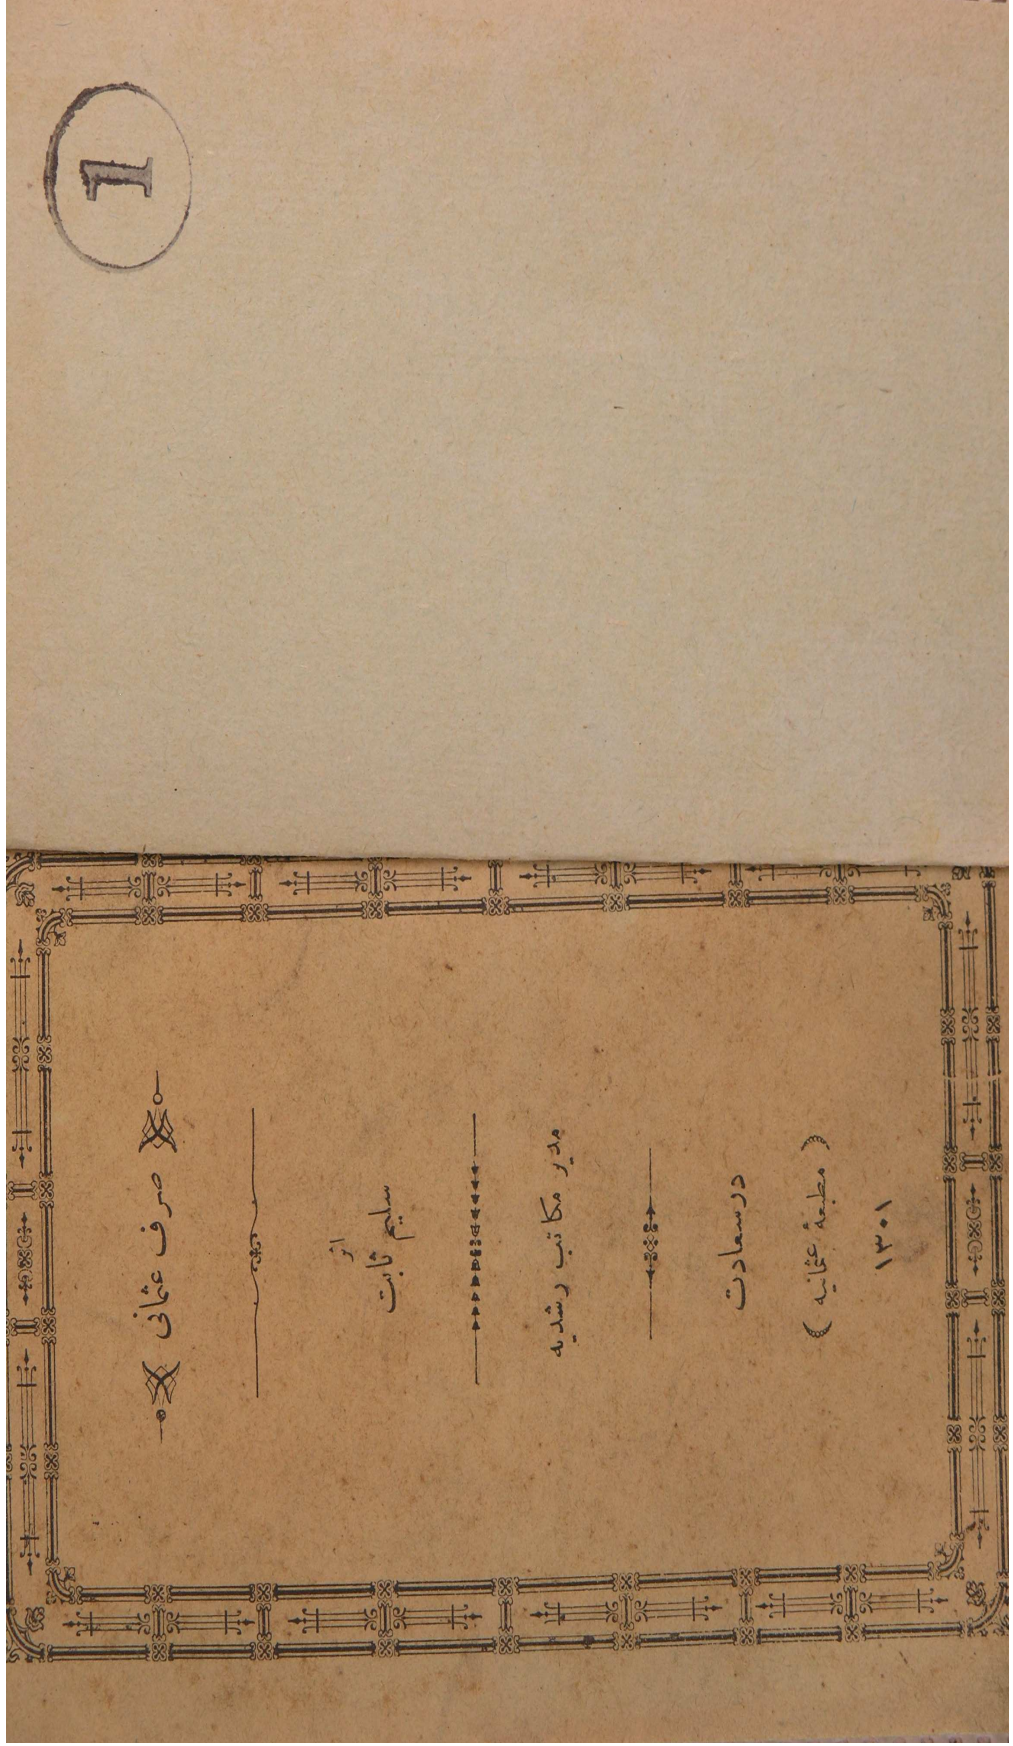 1
صرف عثمانی
اثر
سليم ثابت
مدير مكاتب رشديه
درسعادت
( مطبعۀ عثمانيه )
١٣٠١